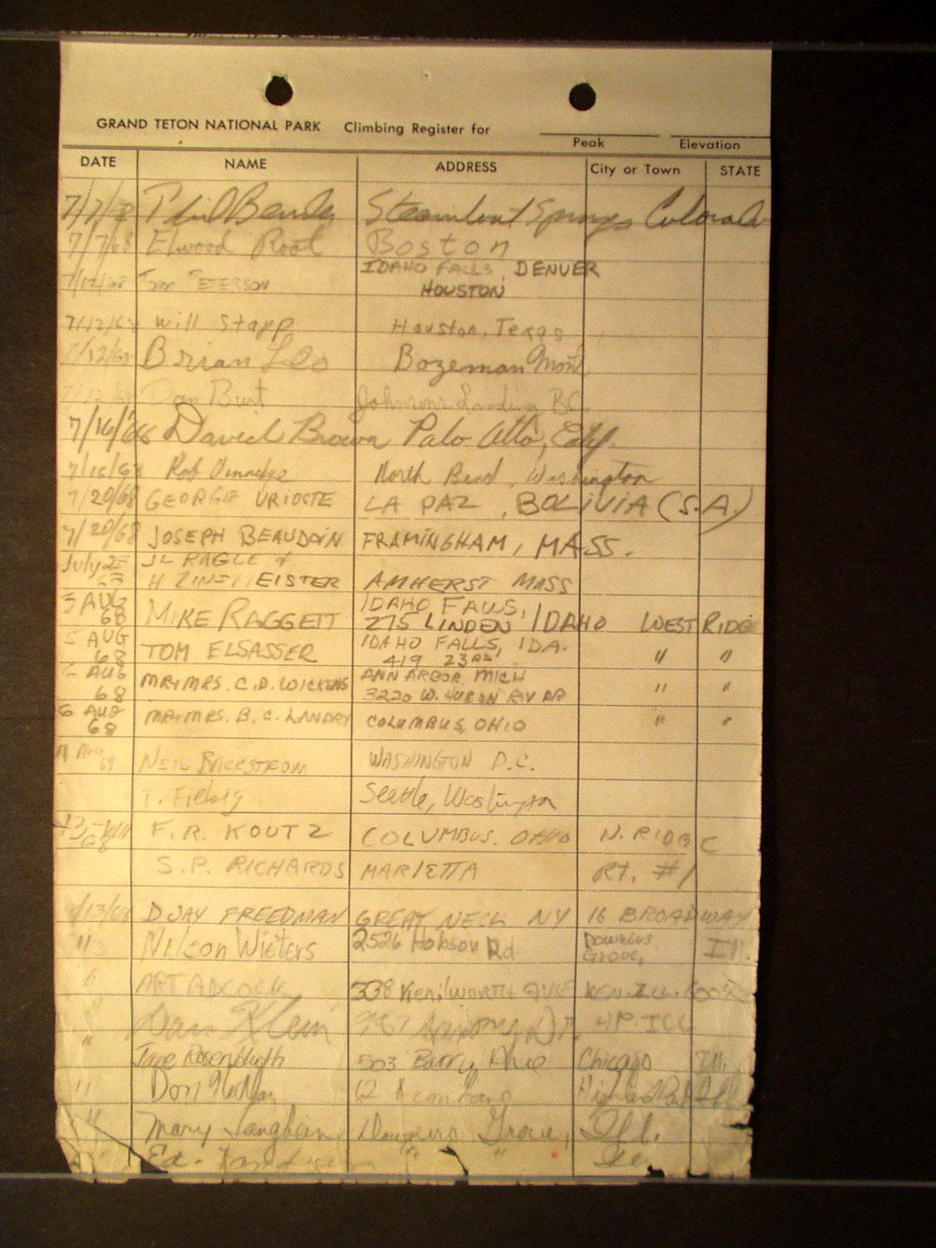 GRAND TETON NATIONAL PARK Climbing Register for
Peak Elevation
DATE NAME ADDRESS City or Town STATE
7/7/68 Steamboat Springs Colorado
7/7/68 Elwood Root Boston
IDAHO FALLS, DENVER
Tom PETERSON HOUSTON
7/12/68 Will Stapp Houston, Texas
7/12/68 Brian Leo Bozeman Mont.
Dan Burt Johnsons Landing BC.
7/16/68 David Brown Palo Alto, Calif.
7/18/68 Rob North Bend, Washington
7/20/68 GEORGE URIOSTE LA PAZ, BOLIVIA (S.A.)
7/20/68 JOSEPH BEAUDOIN FRAMINGHAM, MASS.
July 25 JL RAGLE &
68 H ZINSMEISTER AMHERST MASS
5 AUG IDAHO FALLS,
68 MIKE RAGGETT 275 LINDEN, IDAHO WEST RIDGE
5 AUG IDAHO FALLS, IDA.
68 TOM ELSASSER 419 23RD " "
6 AUG ANN ARBOR, MICH
68 MR & MRS. C.D. WICKENS 3220 W. HURON RIV DR " "
6 AUG
68 MR & MRS. B.C. LANDRY COLUMBUS, OHIO " "
NEIL WASHINGTON D.C.
T. Fielsig Seattle, Washington
F.R. KOUTZ COLUMBUS, OHIO N. RIDGE
S.P. RICHARDS MARIETTA RT. #1
8/13/68 D JAY FREEDMAN GREAT NECK NY 16 BROADWAY
" Nelson Wieters 2526 Hobson Rd. Downers Grove, Ill.
" ART ADCOCK 338 Kenilworth AVE
" Dan Klein 987 Dr. HP. ILL
" Jane Rosenbluth 503 Barry Ave Chicago Ill.
" Don Highland Park Ill
" Mary Langhein Downers Grove, Ill.
Ed. " " Ill.